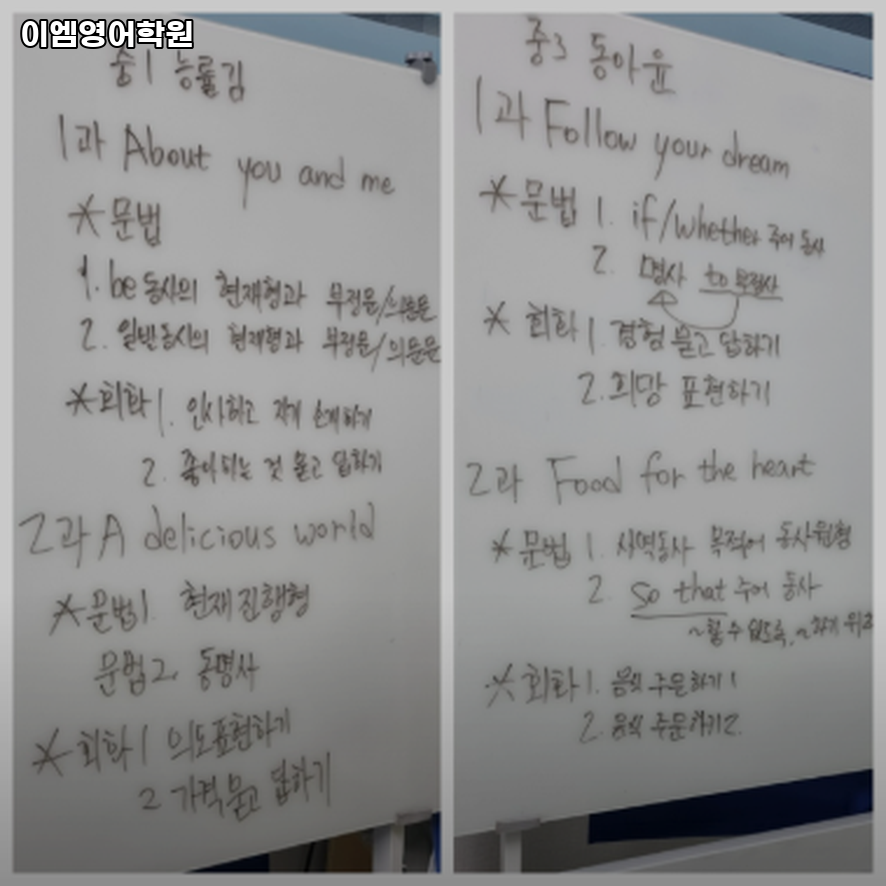 이엠영어학원
중1 능률김
1과 About you and me
* 문법
1. be동사의 현재형과 부정문/의문문
2. 일반동사의 현재형과 부정문/의문문
* 회화 1. 인사하고 자기 소개하기
2. 좋아하는 것 묻고 답하기
2과 A delicious world
* 문법1. 현재진행형
문법2. 동명사
* 회화 1 의도표현하기
2 가격묻고 답하기
중3 동아윤
1과 Follow your dream
* 문법 1. if/whether 주어 동사
2. 명사 to 부정사
* 회화 1. 경험 묻고 답하기
2. 희망 표현하기
2과 Food for the heart
* 문법 1. 사역동사 목적어 동사원형
2. so that 주어 동사
~할 수 있도록, ~하기 위해
* 회화 1. 음식 주문하기 1
2. 음식 주문하기 2.